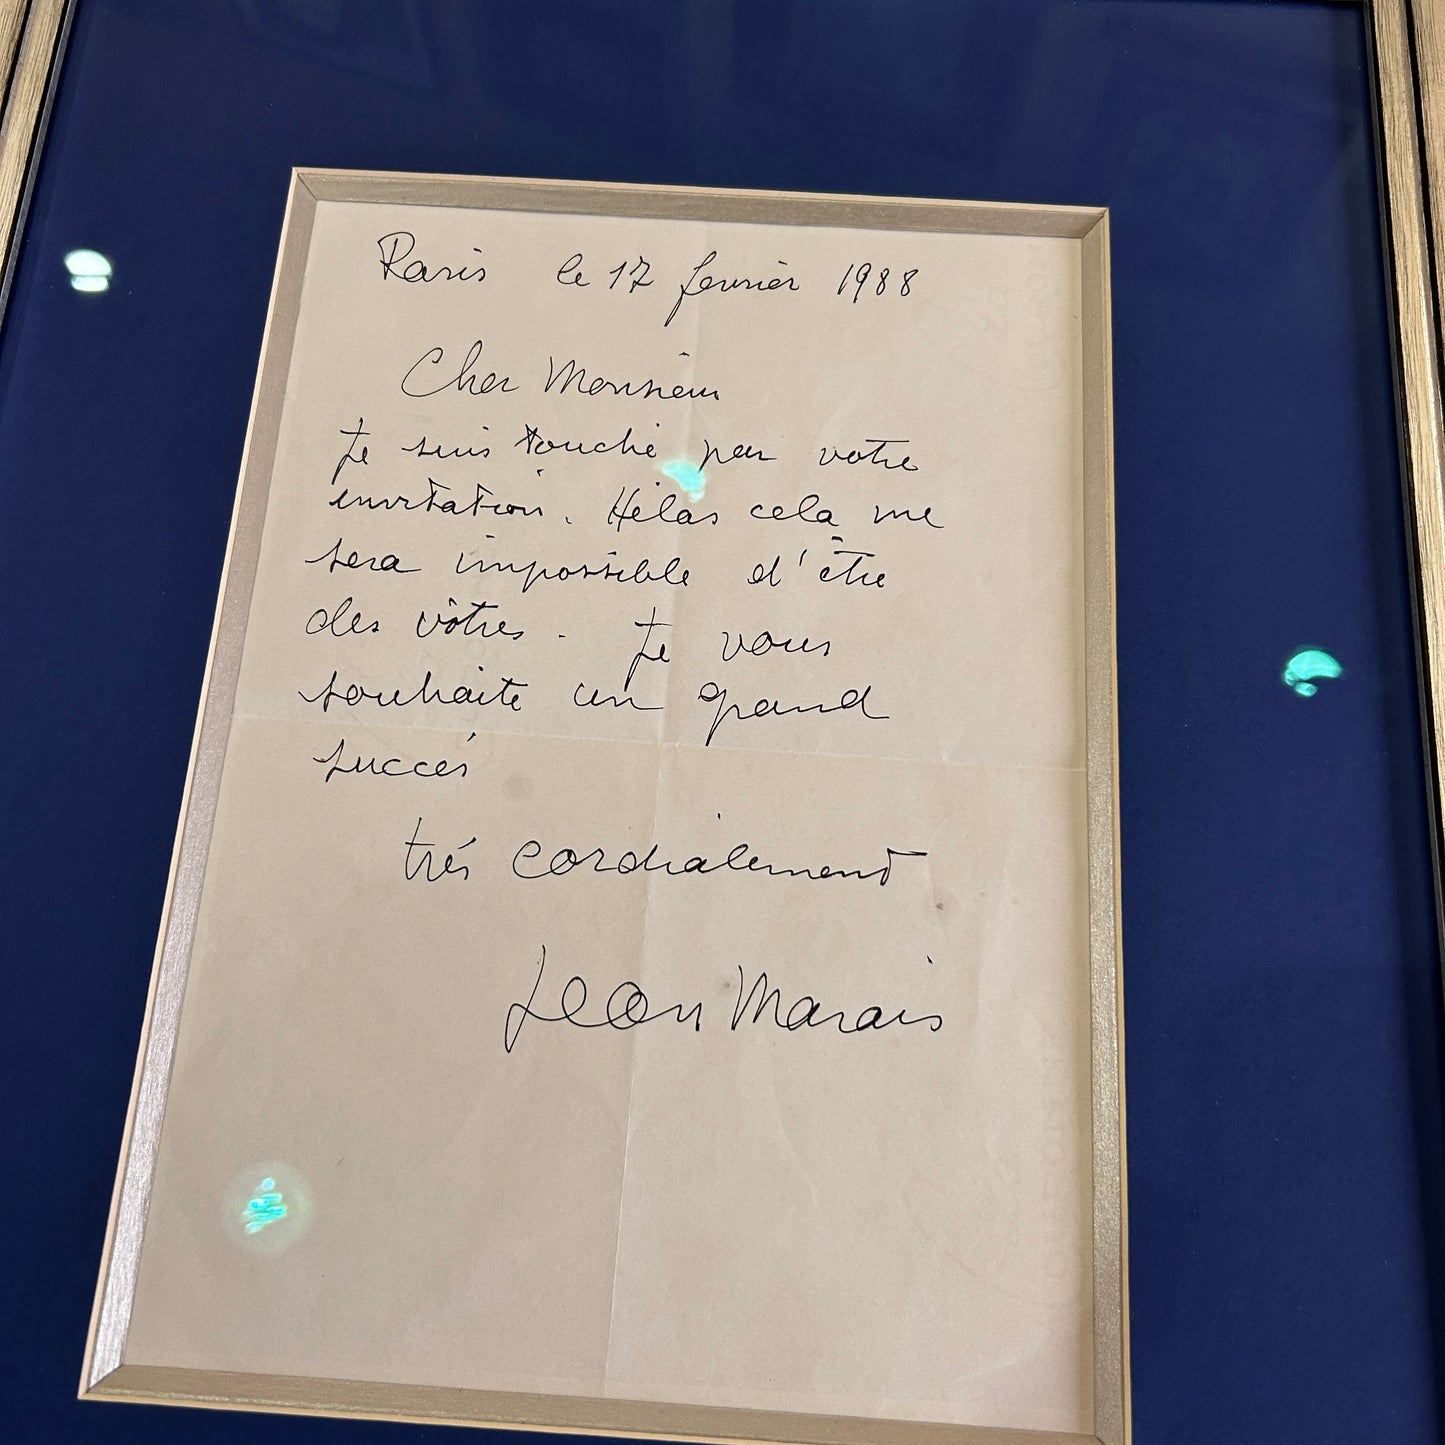 Paris le 17 fevrier 1988
Cher Monsieur
Je suis touché par votre
invitation. Hélas cela me
sera impossible d'être
des vôtres. Je vous
souhaite un grand
succés
trés cordialement
Jean Marais